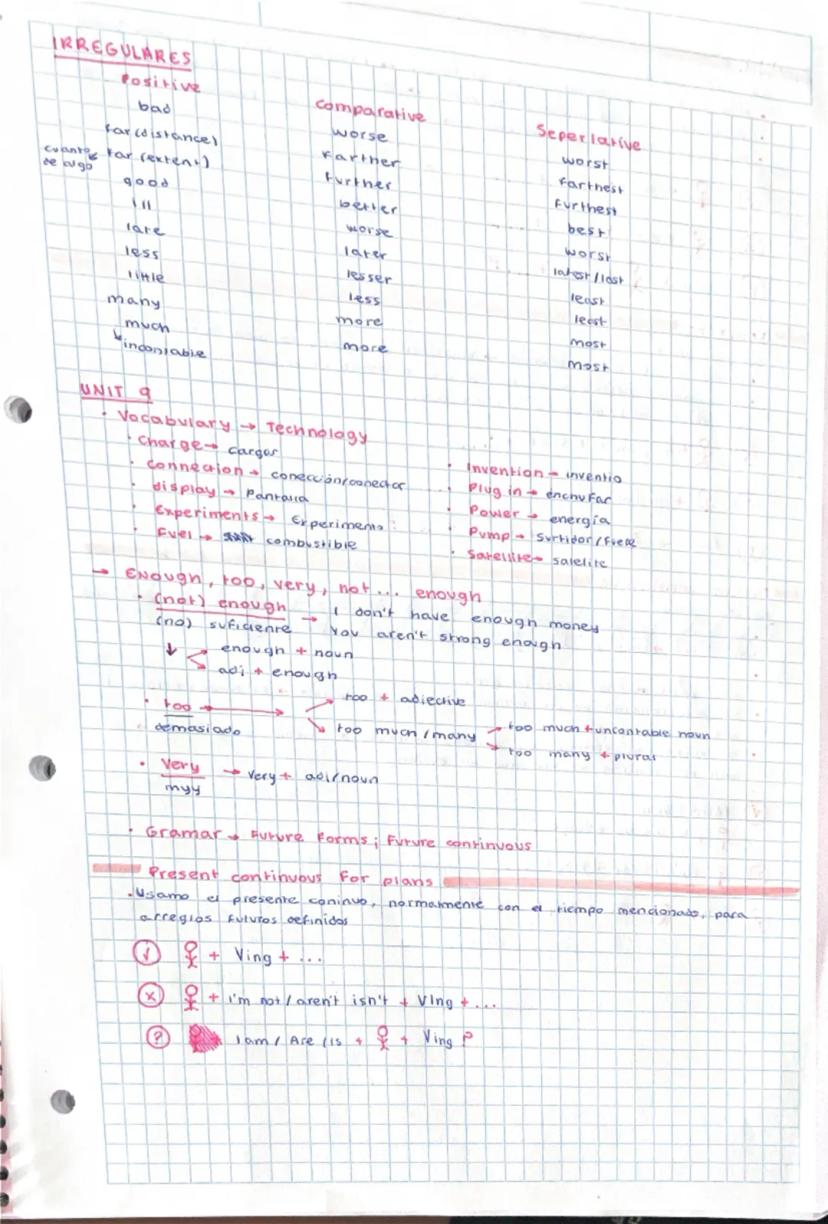 IRREGULARES
Positive Comparative Seperlative
bad worse worst
far (distance) farther farthest
cuanto de algo far (extent) further furthest
good better best
ill worse worst
late later latest/last
less lesser least
little less least
many more most
much more most
↳ incontable
UNIT 9
· Vocabulary → Technology
· Charge → cargar
· Connection → conección/conector
· display → Pantalla
· Experiments → Experimento
· Fuel → combustible
· Invention → inventio
· Plug in → enchufar
· Power → energía
· Pump → surtidor/
· Satellite → satelite
→ Enough, too, very, not... enough
· (not) enough → I don't have enough money
(no) suficiente You aren't strong enough
↓ enough + noun
adj + enough
· too → too + adjective
demasiado too much/many → too much + uncontable noun
→ too many + plural
· Very → Very + adj/noun
myy
· Gramar → Future forms; Future continuous
Present continuous for plans
· Usamo el presente coninuo, normalmente con el tiempo mencionado, para
arreglos futuros definidos
√ + Ving + ...
x + i'm not/aren't isn't + Ving + ...
? I am/Are/is + + Ving ?